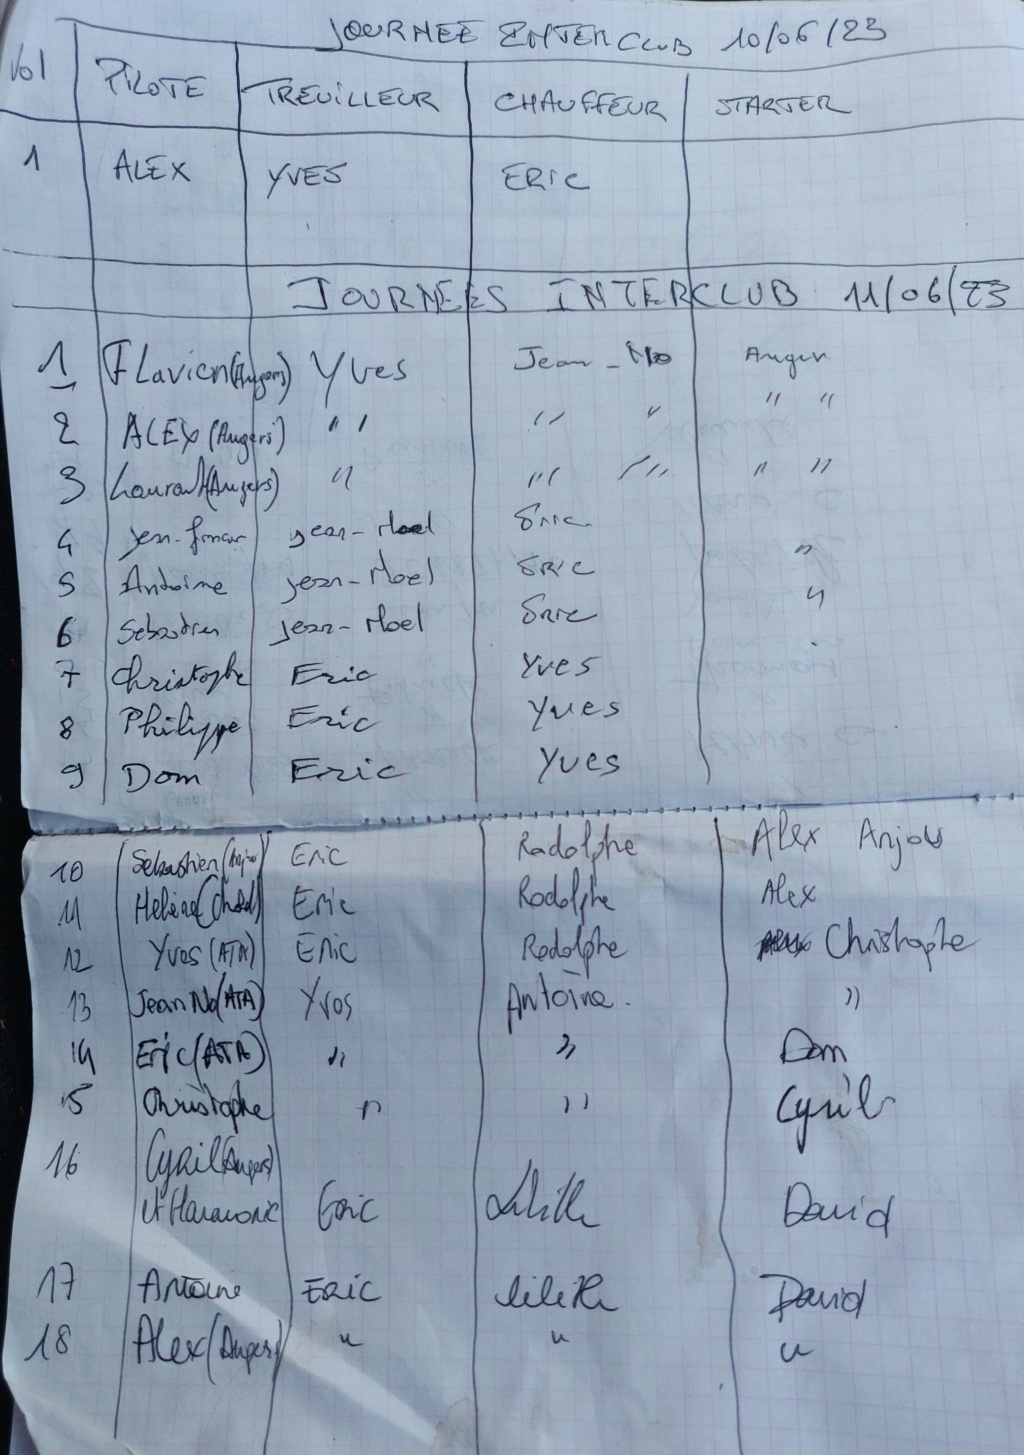 JOURNEE INTERCLUB 10/06/23
Vol PILOTE TREUILLEUR CHAUFFEUR STARTER
1 ALEX YVES ERIC
JOURNEES INTERCLUB 11/06/23
1 Flavien (Angers) Yves Jean-No Anger
2 ALEX (Angers) " " " " " "
3 Laurent (Angers) " " " " "
4 jean-Noel Eric
5 Antoine jean-Noel ERIC "
6 Sebastien jean-Noel Eric "
7 Christophe Eric Yves
8 Philippe Eric Yves
9 Dom Eric Yves
10 Sébastien (Anjou) ERIC Rodolphe Alex Anjou
11 Hélène Eric Rodolphe Alex
12 Yves (ATA) ERic Rodolphe Christophe
13 Jean No (ATA) Yves Antoine. "
14 Eric (ATA) " " Dom
15 Christophe " " Cyril
16 Cyril (Angers)
et Eric Lilith David
17 Antoine ERIC lilith David
18 Alex (Angers) " " "